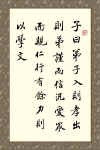 子曰弟子入則孝出
則弟謹而信汎愛眾
而親仁行有餘力則
以學文